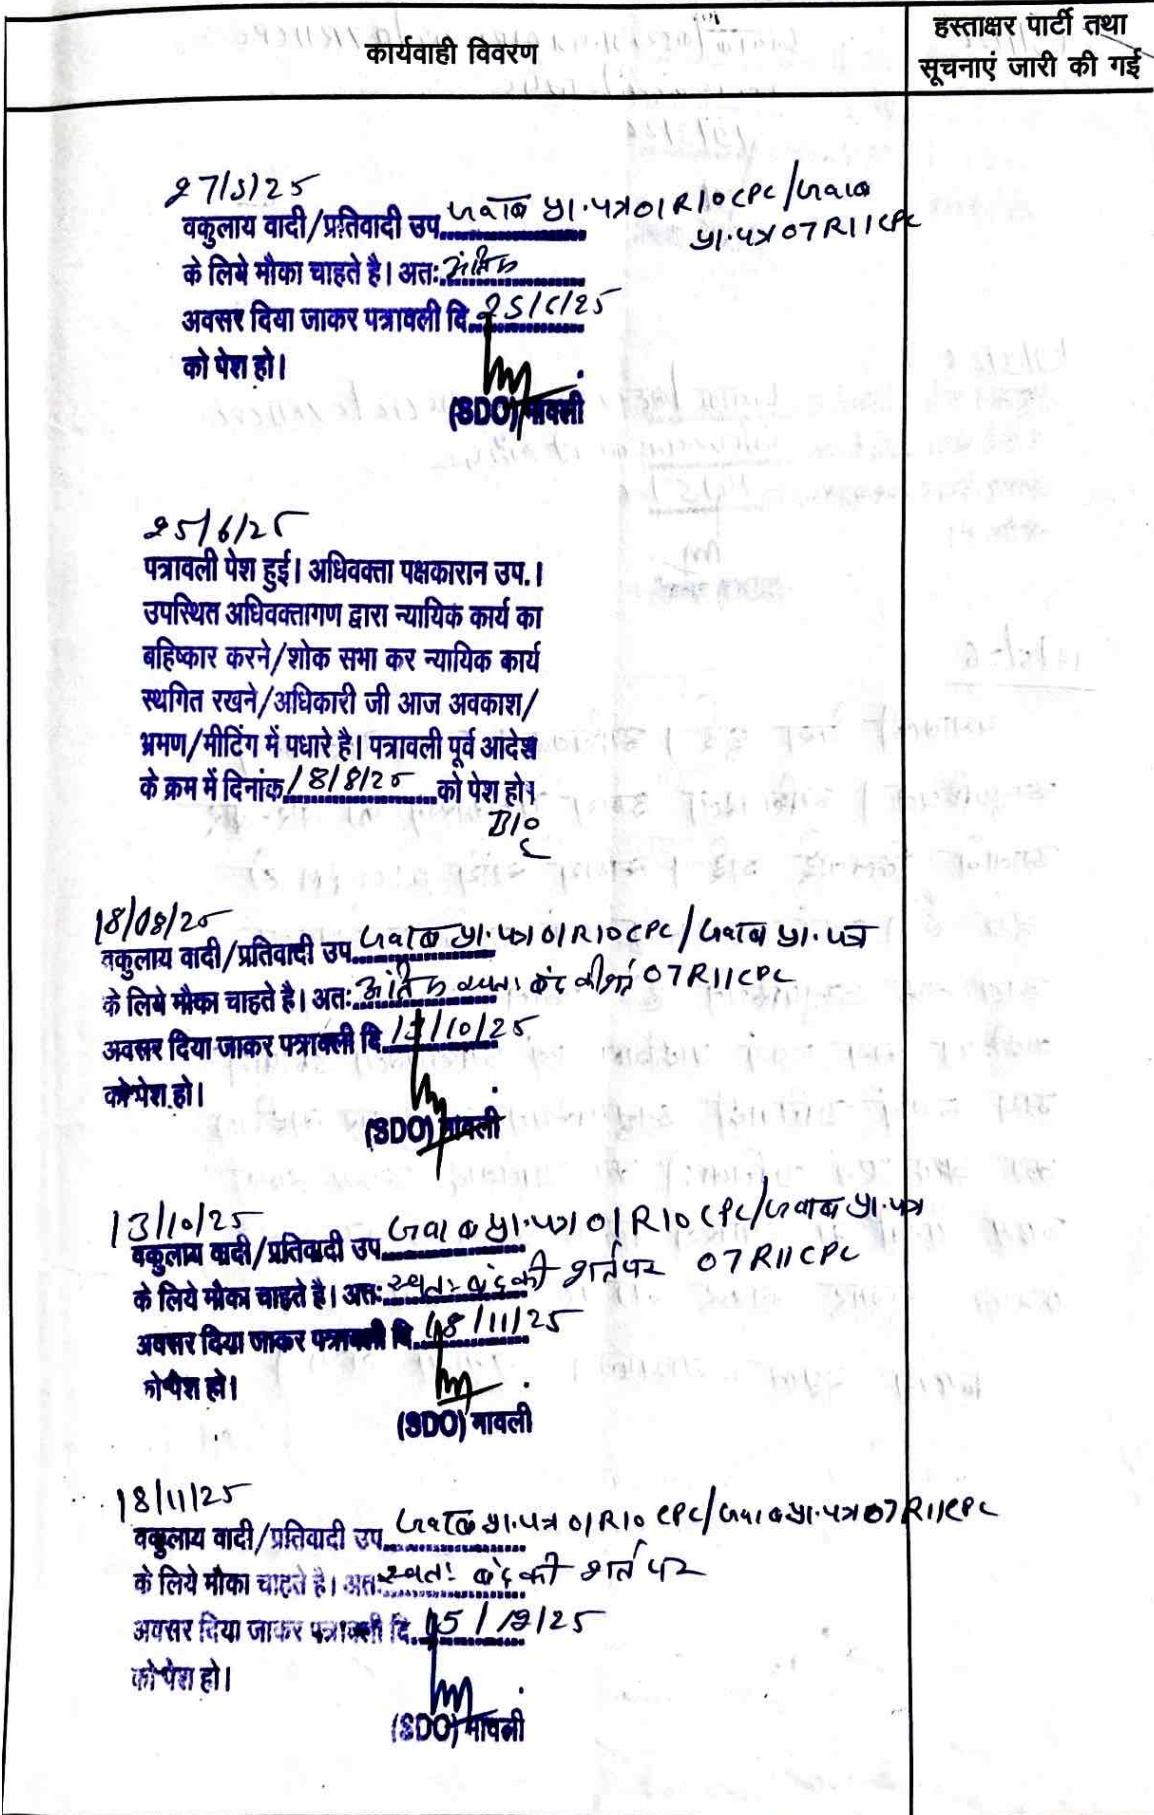 कार्यवाही विवरण
हस्ताक्षर पार्टी तथा
सूचनाएं जारी की गई
27/5/25
वकुलाय वादी/प्रतिवादी उप. जवाब प्रा.पत्र 01R10CPC/जवाब
प्रा.पत्र 07R11CPC
के लिये मौका चाहते है। अतः अंतिम
अवसर दिया जाकर पत्रावली दि. 25/6/25
को पेश हो।
(SDO) मावली
25/6/25
पत्रावली पेश हुई। अधिवक्ता पक्षकारान उप.।
उपस्थित अधिवक्तागण द्वारा न्यायिक कार्य का
बहिष्कार करने/शोक सभा कर न्यायिक कार्य
स्थगित रखने/अधिकारी जी आज अवकाश/
भ्रमण/मीटिंग में पधारे है। पत्रावली पूर्व आदेश
के क्रम में दिनांक 18/8/25 को पेश हो।
B/o
18/08/25
वकुलाय वादी/प्रतिवादी उप. जवाब प्रा.पत्र 01R10CPC/जवाब प्रा.पत्र
के लिये मौका चाहते है। अतः अंतिम स्वतः बंद की शर्त 07R11CPC
अवसर दिया जाकर पत्रावली दि. 13/10/25
को पेश हो।
(SDO) मावली
13/10/25
वकुलाय वादी/प्रतिवादी उप. जवाब प्रा.पत्र 01R10CPC/जवाब प्रा.पत्र
के लिये मौका चाहते है। अतः स्वतः बंद की शर्त पर 07R11CPC
अवसर दिया जाकर पत्रावली दि. 18/11/25
को पेश हो।
(SDO) मावली
18/11/25
वकुलाय वादी/प्रतिवादी उप. जवाब प्रा.पत्र 01R10 CPC/जवाब प्रा.पत्र 07R11CPC
के लिये मौका चाहते है। अतः स्वतः बंद की शर्त पर
अवसर दिया जाकर पत्रावली दि. 15/12/25
को पेश हो।
(SDO) मावली